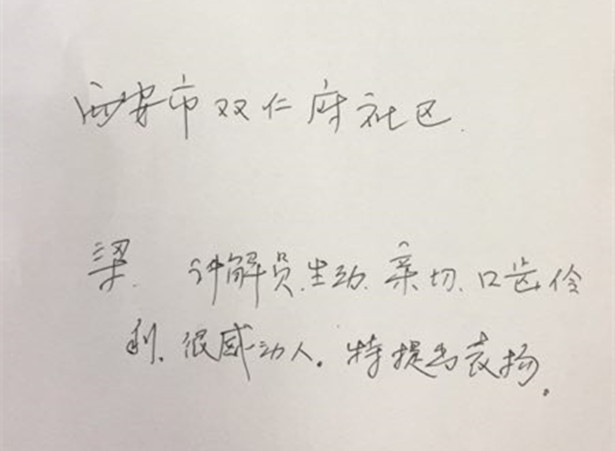 西安市双仁府社区.
梁. 讲解员.生动.亲切.口齿伶
利.很感动人。特提出表扬。